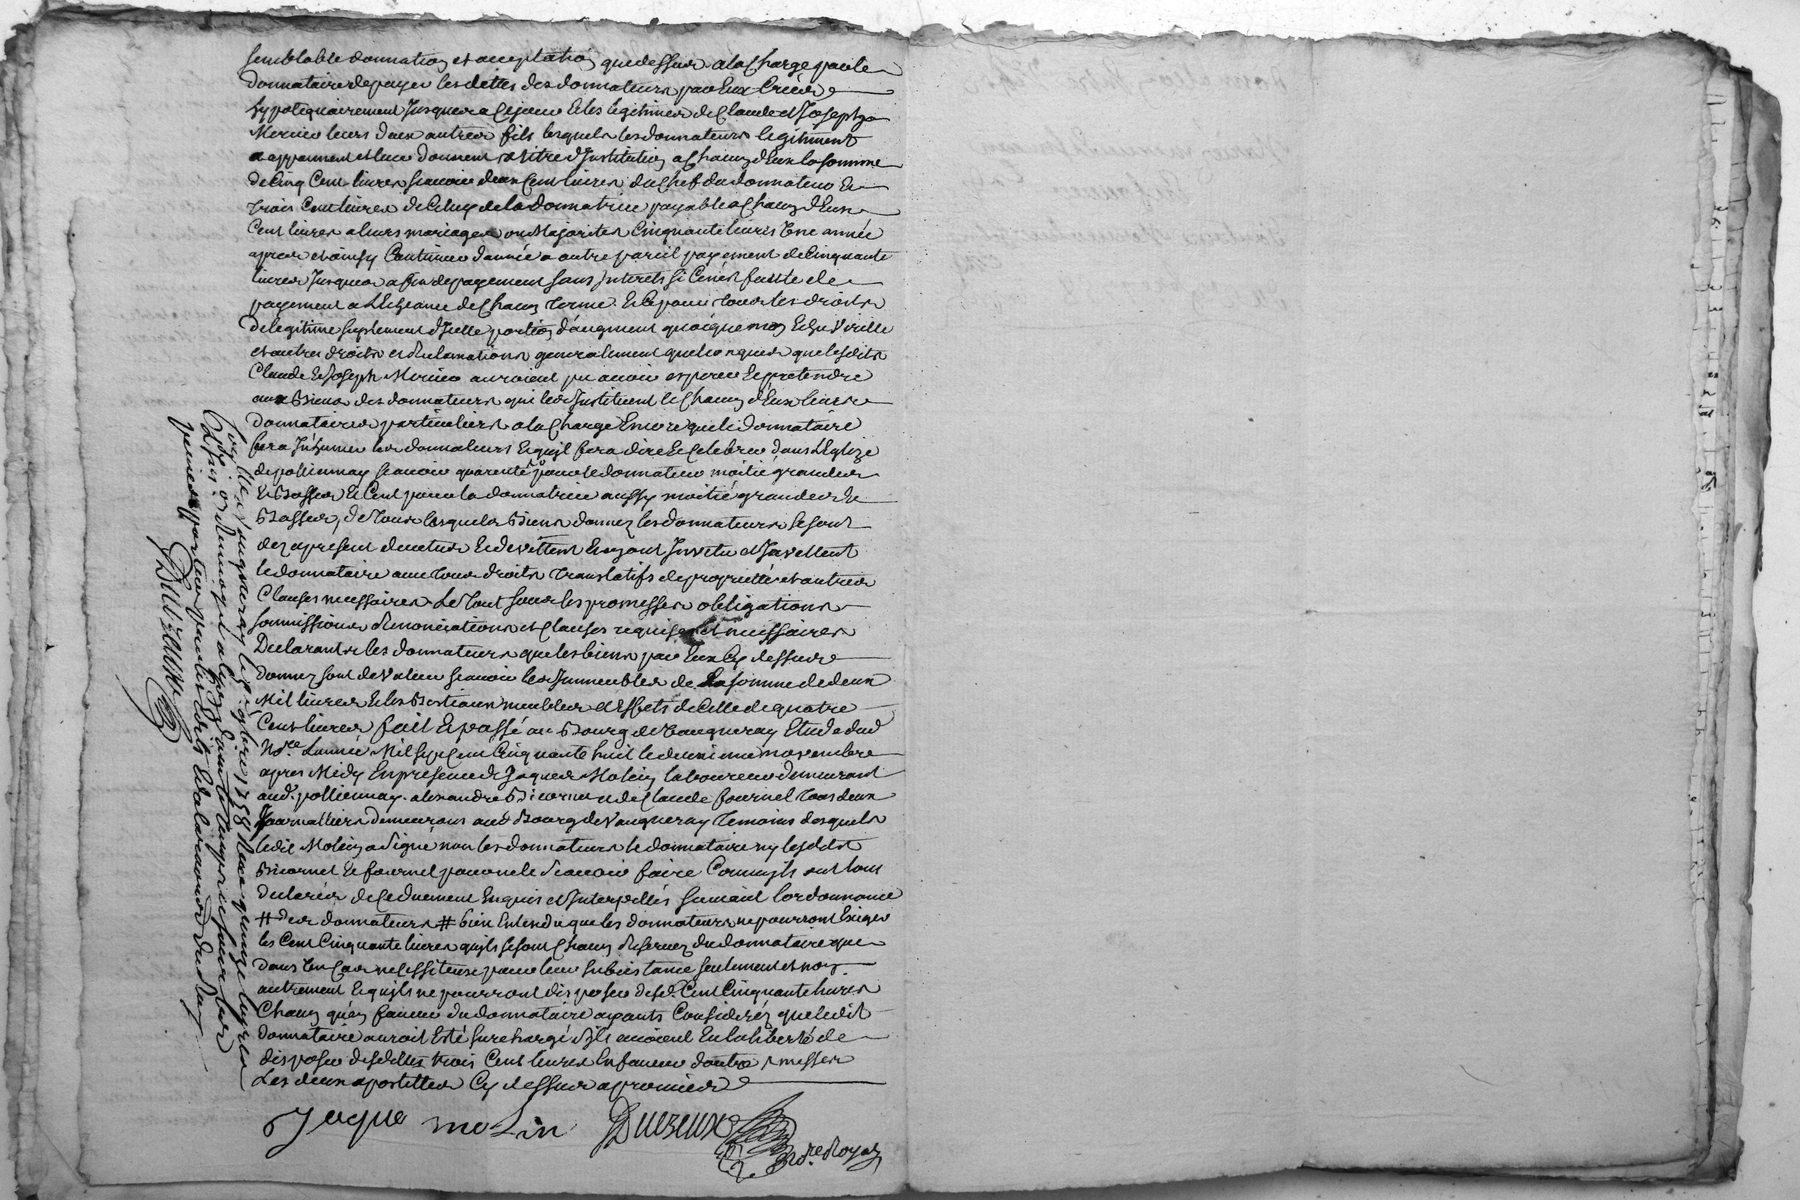 semblable donnation et acceptation que dessus a la charge par le
donnataire de payer les dettes des donnateurs par Eux Créées
hypotequairement Jusques a Ce jour Et les legitimes de Claude et Joseph
Mercier leurs deux autres fils lesquels les donnateurs legitiment
appannent et leur donnent a titre d'Institution a Chacun d'Eux la somme
de Cinq Cent livres scauoir deux Cent livres du Chef du donnateur Et
Trois Cent livres de Celuy de la donnatrice payable a Chacun d'Eux
Cent livres a leurs mariages ou Majorités Cinquante livres Une année
apres et ainsy Continuer d'année a autre pareil payement de Cinquante
livres Jusques a fin de payement sans Interets si Ce n'est faute de
payement a L'Echeance de Chacun terme Et Ce pour tous les droits
de legitime suplement d'Icelle portion d'augment quoique non Echu Virille
et autres droits et reclamations generalement quelconques que lesdits
Claude Et Joseph Mercier auroient pu auoir esperer Et pretendre
aux Biens des donnateurs qui les Instituent Et Chacun d'Eux leurs
donnataires particuliers a la Charge Encore que le donnataire
fera Inhumer les donnateurs Et qu'il fera dire Et Celebrer dans l'Eglize
de pollionnay scauoir quarente pour le donnateur moitié grandes
Et Basses Et Cent pour la donnatrice aussy moitié grandes Et
Basses, de tous lesquels Biens donnez les donnateurs se sont
dez apresent demetus Et devettent Et en ont Invetu et Invettent
le donnataire auec tous droits translatifs de proprietté et autres
Clauses necessaires Le tout sous les promesses obligations
soumissions renonciations et Clauses requises et necessaires
Declarants les donnateurs que les biens par Eux Cy dessus
donnez sont de valeur scauoir les Immeubles de la somme de deux
Mil livres Et les Bestiaux meubles Et Effets de Celle de quatre
Cent livres fait Et passé au Bourg de Vaugneray Etude dud
No.re L'année Mil sept Cent Cinquante huit le deuxieme novembre
apres Midy En presence de Jaques Molin laboureur demeurant
aud. pollionnay. alexandre Bicornet et Claude fournel tous deux
Journalliers demeurans aud Bourg de Vaugneray temoins desquels
ledit Molin a signé non les donnateurs le donnataire ny lesdits
Bicornet Et fournel pour ne le scauoir faire Comm'ils ont tous
declarés de Ce duement Enquis et Interpellés suivant l'ordonnance
# des donnateurs # bien Entendu que les donnateurs ne pourront Exiger
les Cent Cinquante livres qu'ils se sont Chacun reservez du donnataire que
dans Un Cas necessiteux pour leur subcistance seulement et non
autrement Et qu'ils ne pourront disposer desd. Cent Cinquante livres
Chacun qu'en faueur du donnataire ayants Considerés que ledit
donnataire auroit Esté surchargé s'ils auoient Eu la liberté de
disposer desdittes trois Cent livres En faueur d'autre
Les deux apostilles Cy dessus approuuées
Jaque molin Duezeux
No.re Royal
Con.lé a Vaugneray le 15 9bre 1758 Recu quinze livres